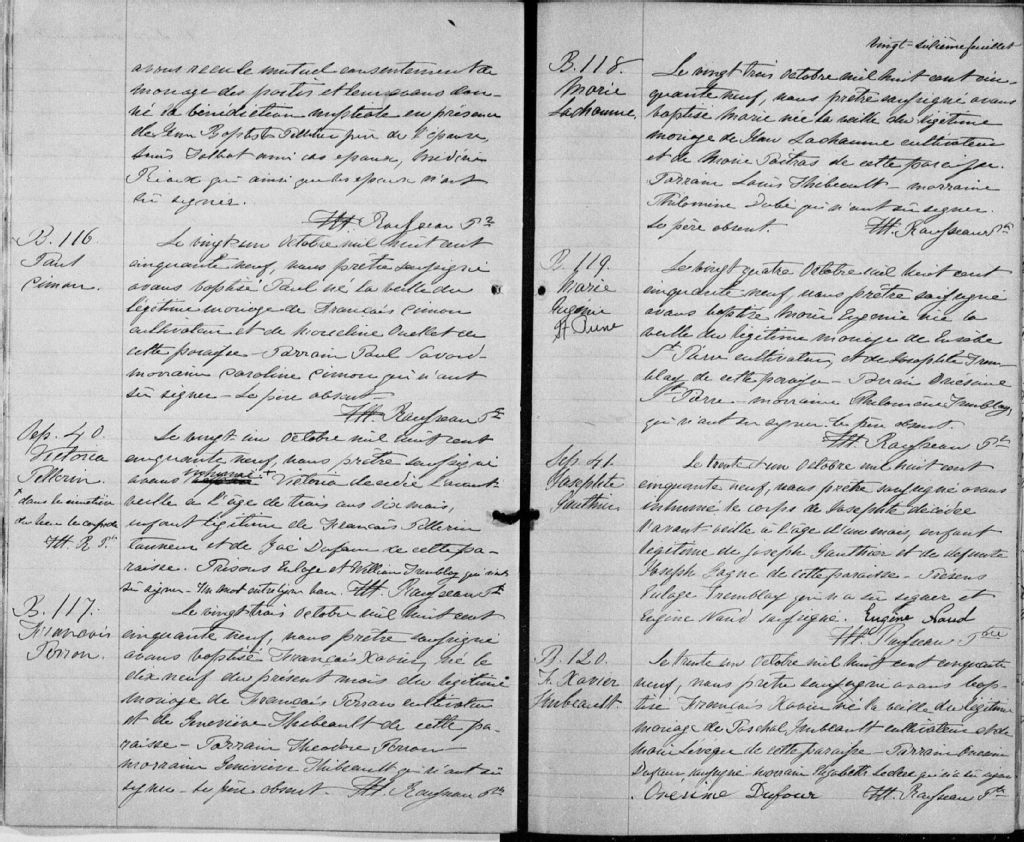 avons reçu le mutuel consentement de
mariage des parties et leur avons don-
né la bénédiction nuptiale en présence
de Jean Baptiste Pelletier père de l'épouse,
Louis Talbot ami des époux,
qui ainsi que les époux n'ont
su signer.
Rousseau Ptre
B. 116
Paul
Cimon.
Le vingt-un Octobre mil huit cent
cinquante neuf, nous prêtre soussigné
avons baptisé Paul né la veille du
légitime mariage de François Cimon
cultivateur et de Marceline Ouellet de
cette paroisse - Parrain Paul Savard -
marraine Caroline Cimon qui n'ont
su signer - Le père absent.
Rousseau Ptre
Sep. 40.
Victoria
Pellerin
Le vingt un Octobre mil huit cent
cinquante neuf, nous prêtre soussigné
avons inhumé + Victoria décédée l'avant
veille à l'âge de trois ans six mois,
enfant légitime de François Pellerin
tanneur et de Zoé Dufour de cette pa-
raisse. Présens Euloge et William Tremblay qui n'ont
su signer - Un mot entreligne bon. Rousseau Ptre
+ dans le cimetière
du lieu le corps de
R Ptre
B. 117.
François
Perron.
Le vingt trois Octobre mil huit cent
cinquante neuf, nous prêtre soussigné
avons baptisé François Xavier, né le
dix neuf du présent mois du légitime
mariage de François Perron cultivateur
et de Geneviève Thibeault de cette pa-
raisse - Parrain Théodore Perron
marraine Geneviève Thibeault qui n'ont su
signer - Le père absent. Rousseau Ptre
Vingt-sixième feuillet
B. 118.
Marie
Lachaunne
Le vingt trois Octobre mil huit cent cin-
quante neuf, nous prêtre soussigné avons
baptisé Marie née la veille du légitime
mariage de Jean Lachaunne cultivateur
et de Marie Poitras de cette paroisse.
Parrain Louis Thibeault - marraine
Philomène Dubé qui n'ont su signer.
Le père absent. Rousseau Ptre
B. 119.
Marie
Eugénie
St Pierre
Le vingt quatre Octobre mil huit cent
cinquante neuf, nous prêtre soussigné
avons baptisé Marie Eugénie née la
veille du légitime mariage de Eusèbe
St Pierre cultivateur, et de Josephte Trem-
blay de cette paroisse - Parrain Onésime
St Pierre - marraine Philomène Tremblay,
qui n'ont su signer. Le père absent.
Rousseau Ptre
Sep. 41.
Josephte
Gauthier
Le trente et un Octobre mil huit cent
cinquante neuf, nous prêtre soussigné avons
inhumé le corps de Josephte décédée
l'avant-veille à l'âge d'un mois, enfant
légitime de Joseph Gauthier et de défunte
Joseph Gagné de cette paroisse - Présens
Euloge Tremblay qui n'a su signer et
Eugène Naud soussigné. Eugène Naud
Rousseau Ptre
B. 120.
F. Xavier
Imbeault.
Le trente un Octobre mil huit cent cinquante
neuf, nous prêtre soussigné avons bap-
tisé François Xavier né la veille du légitime
mariage de Paschal Imbeault cultivateur et de
Marie Levesque de cette paroisse - Parrain Onésime
Dufour soussigné marraine Elizabeth Leclerc qui n'a su signer
Onesime Dufour Rousseau Ptre